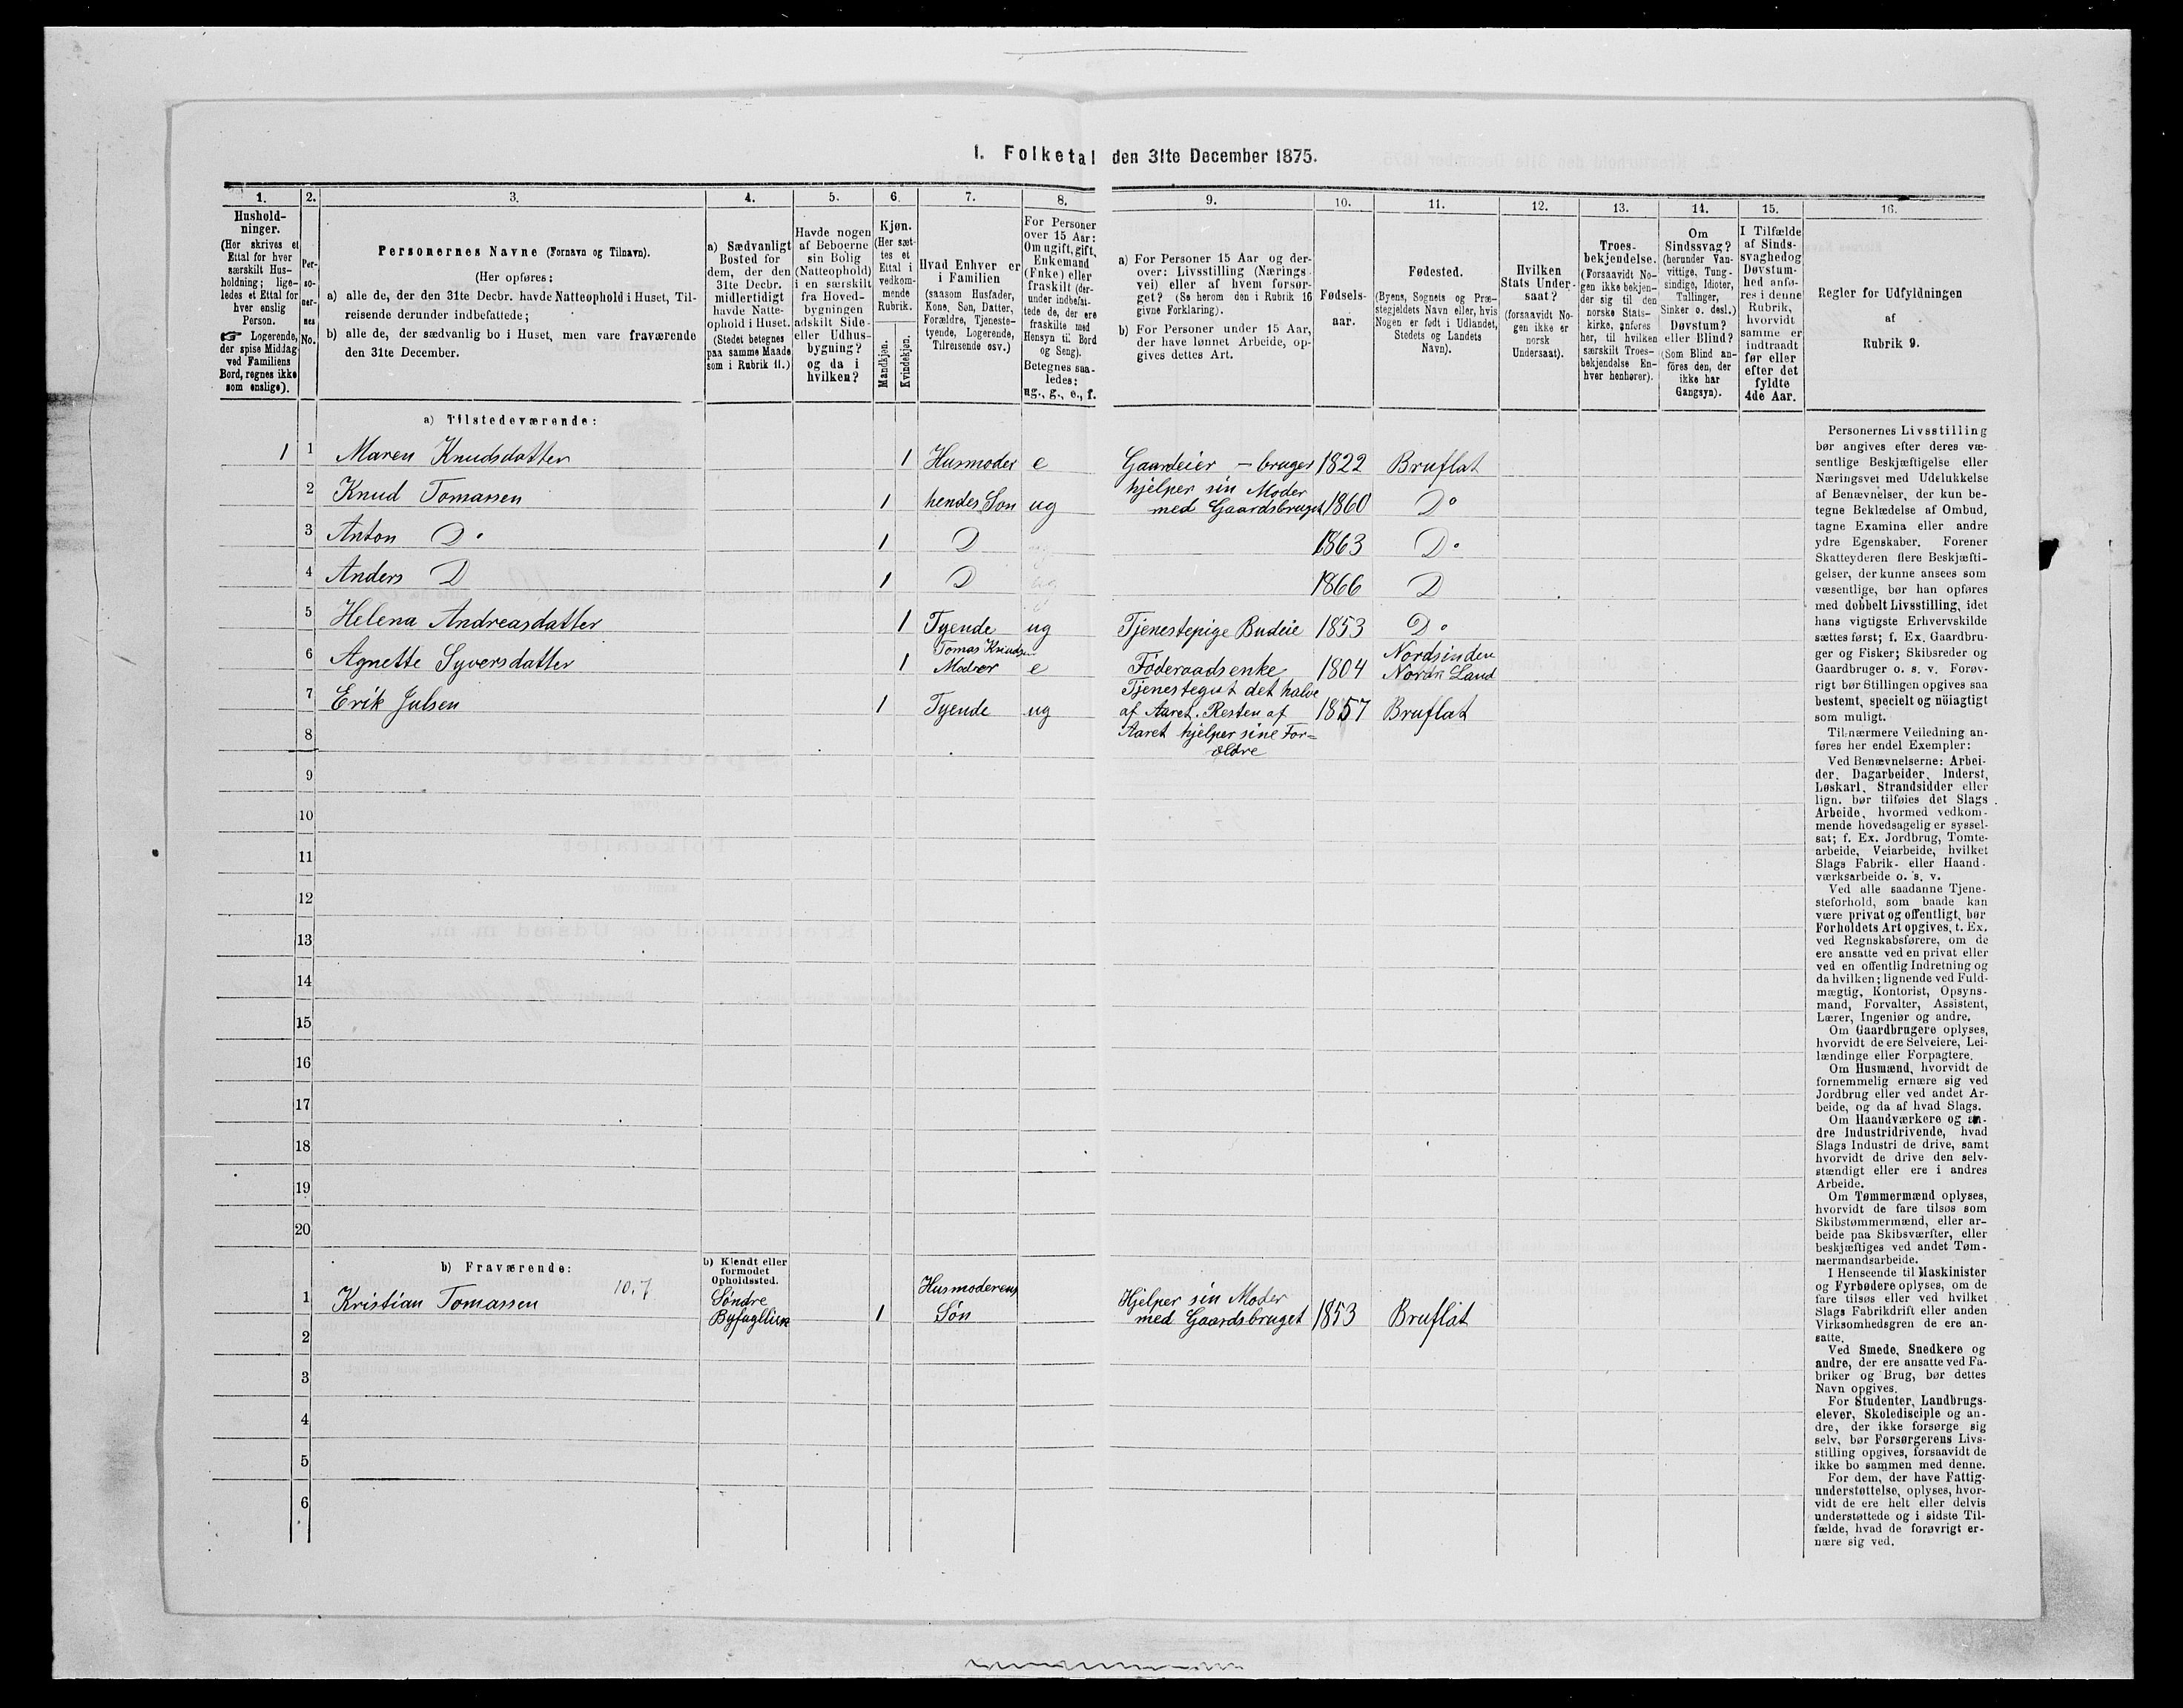 1. Folketal den 31te December 1875.
1. 2. 3. 4. 5. 6. 7. 8. 9. 10. 11. 12. 13. 14. 15. 16.
Hushold-
ninger.
(Her skrives et
Ettal for hver
særskilt Hus-
holdning; lige-
ledes et Ettal for
hver enslig
Person.
☞ Logerende,
der spise Middag
ved Familiens
Bord, regnes ikke
som enslige).
Per-
so-
ner-
nes
No.
Personernes Navne (Fornavn og Tilnavn).
(Her opføres:
a) alle de, der den 31te Decbr. havde Natteophold i Huset, Til-
reisende derunder indbefattede;
b) alle de, der sædvanlig bo i Huset, men vare fraværende
den 31te December.
a) Sædvanligt
Bosted for
dem, der den
31te Decbr.
midlertidigt
havde Natte-
ophold i Huset.
(Stedet betegnes
paa samme Maade
som i Rubrik 11.)
Havde nogen
af Beboerne
sin Bolig
(Natteophold)
i en særskilt
fra Hoved-
bygningen
adskilt Side-
eller Udhus-
bygning?
og da i
hvilken?
Kjøn.
(Her sæt-
tes et
Ettal i
vedkom-
mende
Rubrik.
Mandkjøn.
Kvindekjøn.
Hvad Enhver er
i Familien
(saasom Husfader,
Kone, Søn, Datter,
Forældre, Tjeneste-
tyende, Logerende,
Tilreisende osv.)
For Personer
over 15 Aar:
Om ugift, gift,
Enkemand
(Enke) eller
fraskilt (der-
under indbefat-
tede de, der ere
fraskilte med
Hensyn til Bord
og Seng).
Betegnes saa-
ledes:
ug., g., e., f.
a) For Personer 15 Aar og der-
over: Livsstilling (Nærings-
vei) eller af hvem forsør-
get? (Se herom den i Rubrik 16
givne Forklaring).
b) For Personer under 15 Aar,
der have lønnet Arbeide, op-
gives dettes Art.
Fødsels-
aar.
Fødested.
(Byens, Sognets og Præ-
stegjeldets Navn eller, hvis
Nogen er født i Udlandet,
Stedets og Landets
Navn).
Hvilken
Stats Under-
saat?
(forsaavidt No-
gen ikke er
norsk
Undersaat).
Troes-
bekjendelse.
(Forsaavidt No-
gen ikke bekjen-
der sig til den
norske Stats-
kirke, anføres
her, til hvilken
særskilt Troes-
bekjendelse En-
hver henhører).
Om
Sindssvag?
(herunder Van-
vittige, Tung-
sindige, Idioter,
Tullinger,
Sinker o. desl.)
Døvstum?
eller Blind?
(Som Blind an-
føres den, der
ikke har
Gangsyn).
I Tilfælde
af Sinds-
svaghedog
Døvstum-
hed anfø-
res i denne
Rubrik,
hvorvidt
samme er
indtraadt
før eller
efter det
fyldte
4de Aar.
Regler for Udfyldningen
af
Rubrik 9.
a) Tilstedeværende:
1 1 Maren Knudsdatter 1 Husmoder e Gaardeier – bruger 1822 Bruflat
2 Knud Tomassen 1 hendes Søn ug hjelper sin Moder
med Gaardsbruget 1860 Do
3 Anton Do 1 D 1863 Do
4 Anders D 1 D 1866 D
5 Helena Andreasdatter 1 Tyende ug Tjenestepige Budeie 1853 Do
6 Agnette Syversdatter 1 Tomas Knudsen
Moder e Föderaadsenke 1804 Nordsinden
Nordr Land
7 Erik Julsen 1 Tyende ug Tjenestegut det halve
af Aaret. Resten af 1857 Bruflat
8 Aaret hjelper sine For=
ældre
9
10
11
12
13
14
15
16
17
18
19
20
b) Fraværende:
b) Kjendt eller
formodet
Opholdssted.
1 Kristian Tomassen 10.7 Söndre
Byfugllien 1 Husmoderens
Søn Hjelper sin Moder
med Gaardsbruget 1853 Bruflat
2
3
4
5
6
Personernes Livsstilling
bør angives efter deres væ-
sentlige Beskjæftigelse eller
Næringsvei med Udelukkelse
af Benævnelser, der kun be-
tegne Beklædelse af Ombud,
tagne Examina eller andre
ydre Egenskaber. Forener
Skatteyderen flere Beskjæfti-
gelser, der kunne ansees som
væsentlige, bør han opføres
med dobbelt Livsstilling, idet
hans vigtigste Erhvervskilde
sættes først; f. Ex. Gaardbru-
ger og Fisker; Skibsreder og
Gaardbruger o. s. v. Forøv-
rigt bør Stillingen opgives saa
bestemt, specielt og nöiagtigt
som muligt.
Til nærmere Veiledning an-
føres her endel Exempler:
Ved Benævnelserne: Arbei-
der, Dagarbeider, Inderst,
Løskarl, Strandsidder eller
lign. bør tilføies det Slags
Arbeide, hvormed vedkom-
mende hovedsagelig er syssel-
sat; f. Ex. Jordbrug, Tomte-
arbeide, Veiarbeide, hvilket
Slags Fabrik- eller Haand-
værksarbeide o. s. v.
Ved alle saadanne Tjene-
steforhold, som baade kan
være privat og offentligt, bør
Forholdets Art opgives, t. Ex.
ved Regnskabsførere, om de
ere ansatte ved en privat eller
ved en offentlig Indretning og
da hvilken; lignende ved Fuld-
mægtig, Kontorist, Opsyns-
mand, Forvalter, Assistent,
Lærer, Ingeniør og andre.
Om Gaardbrugere oplyses,
hvorvidt de ere Selveiere, Lei-
lændinge eller Forpagtere.
Om Husmænd, hvorvidt de
fornemmelig ernære sig ved
Jordbrug eller ved andet Ar-
beide, og da af hvad Slags.
Om Haandværkere og an-
dre Industridrivende, hvad
Slags Industri de drive, samt
hvorvidt de drive den selv-
stændigt eller ere i andres
Arbeide.
Om Tømmermænd oplyses,
hvorvidt de fare tilsøs som
Skibstømmermænd, eller ar-
beide paa Skibsværfter, eller
beskjæftiges ved andet Tøm-
mermandsarbeide.
I Henseende til Maskinister
og Fyrbødere oplyses, om de
fare tilsøs eller ved hvilket
Slags Fabrikdrift eller anden
Virksomhedsgren de ere an-
satte.
Ved Smede, Snedkere og
andre, der ere ansatte ved Fa-
briker og Brug, bør dettes
Navn opgives.
For Studenter, Landbrugs-
elever, Skoledisciple og an-
dre, der ikke forsørge sig
selv, bør Forsørgerens Livs-
stilling opgives, forsaavidt de
ikke bo sammen med denne.
For dem, der have Fattig-
understøttelse, oplyses, hvor-
vidt de ere helt eller delvis
understøttede og i sidste Til-
fælde, hvad de forøvrigt er-
nære sig ved.